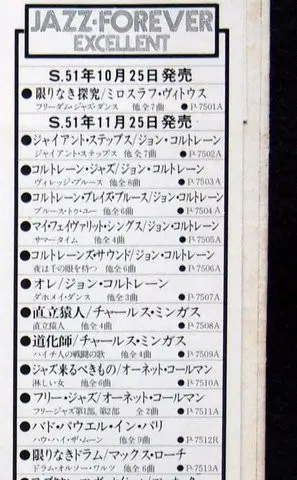 JAZZ·FOREVER
EXCELLENT
S.51年10月25日発売
●限りなき探究/ミロスラフ・ヴィトウス
フリーダム・ジャズ・ダンス 他全7曲 ●P-7501A
S.51年11月25日発売
●ジャイアント・ステップス/ジョン・コルトレーン
ジャイアント・ステップス 他全7曲 ●P-7502A
●コルトレーン・ジャズ/ジョン・コルトレーン
ヴィレッジ・ブルース 他全8曲 ●P-7503A
●コルトレーン・プレイズ・ブルース/ジョン・コルトレーン
ブルース・トゥ・ユー 他全6曲 ●P-7504A
●マイ・フェイヴァリット・シングス/ジョン・コルトレーン
サマータイム 他全4曲 ●P-7505A
●コルトレーンズ・サウンド/ジョン・コルトレーン
夜は千の眼を持つ 他全6曲 ●P-7506A
●オレ/ジョン・コルトレーン
ダホメイ・ダンス 他全3曲 ●P-7507A
●直立猿人/チャールス・ミンガス
直立猿人 他全4曲 ●P-7508A
●道化師/チャールス・ミンガス
ハイチ人の戦闘の歌 他全4曲 ●P-7509A
●ジャズ来るべきもの/オーネット・コールマン
淋しい女 他全6曲 ●P-7510A
●フリー・ジャズ/オーネット・コールマン
フリージャズ第1部、第2部 全2曲 ●P-7511A
●バド・パウエル・イン・パリ
ハウ・ハイ・ザ・ムーン 他全9曲 ●P-7512R
●限りなきドラム/マックス・ローチ
ドラム・オルソー・ワルツ 他全6曲 ●P-7513A